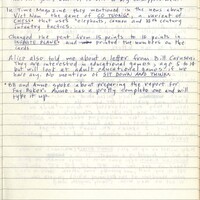 In Time Magazine they mentioned in the news about
Viet Nam the game of CO TUONG, a variant of
CHESS that uses "elephants, cannon and 18th century
infantry tactics.
Changed the   from 15 points to 16 points in
  PLANET and   printed the numbers on the
cards.
Alice also told me about a letter from Bill Caruson.
They are interested in educational games, age 5 to 18
but will look at adult educational games if we
have any. No mention of SIT DOWN AND THINK.
BB and Anne spoke about preparing the report for
Pay  . Anne has a pretty complete one and will
type it up.